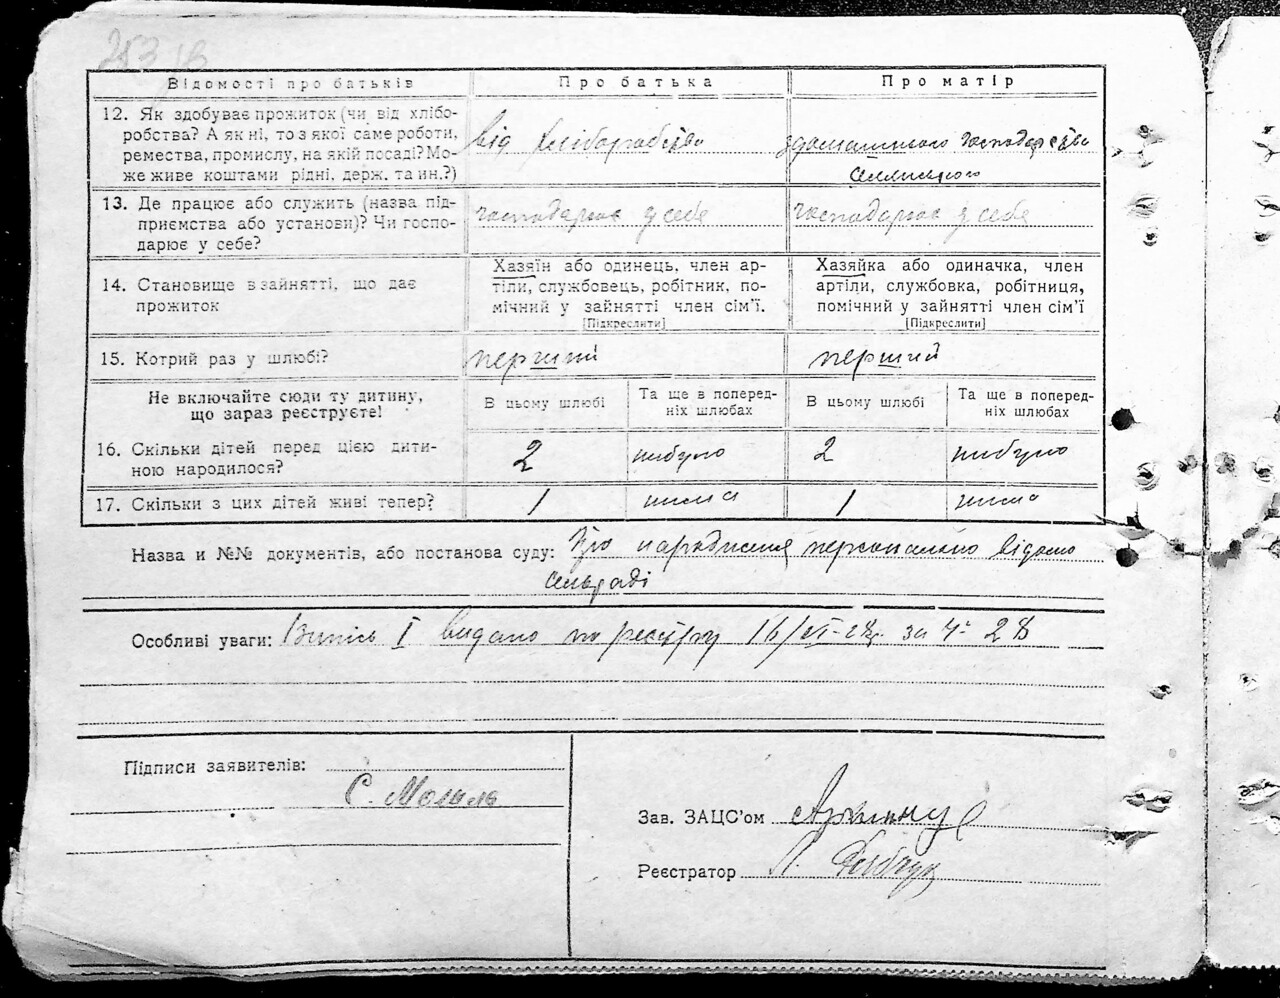 253
Відомості про батьків Про батька Про матір
12. Як здобуває прожиток (чи від хлібо-
робства? А як ні, то з якої саме роботи,
ремества, промислу, на якій посаді? Мо-
же живе коштами рідні, держ. та ин.?)
від хліборобства
здомашнього господарства
13. Де працює або служить (назва під-
приємства або установи)? Чи госпо-
дарює у себе?
господарює у себе
господарює у себе
14. Становище в занятті, що дає
прожиток
Хазяїн або одинець, член ар-
тіли, службовець, робітник, по-
мічний у зайнятті член сім’ї.
[Підкреслити]
Хазяйка або одиначка, член
артіли, службовка, робітниця,
помічний у зайнятті член сім’ї
[Підкреслити]
15. Котрий раз у шлюбі?
перший
перший
Не включайте сюди ту дитину,
що зараз реєструєте!
В цьому шлюбі
Та ще в поперед-
ніх шлюбах
В цьому шлюбі
Та ще в поперед-
ніх шлюбах
16. Скільки дітей перед цією дити-
ною народилося?
2 небуло 2 небуло
17. Скільки з цих дітей живі тепер?
1 нема 1 нема
Назва и №№ документів, або постанова суду: Про народження персонально відомо
сільраді
Особливі уваги: Випис I видано по реєстру 16/VI-28р. за ч: 28
Підписи заявителів:
С. Мольль
Зав. ЗАЦС’ом
Реєстратор Л.